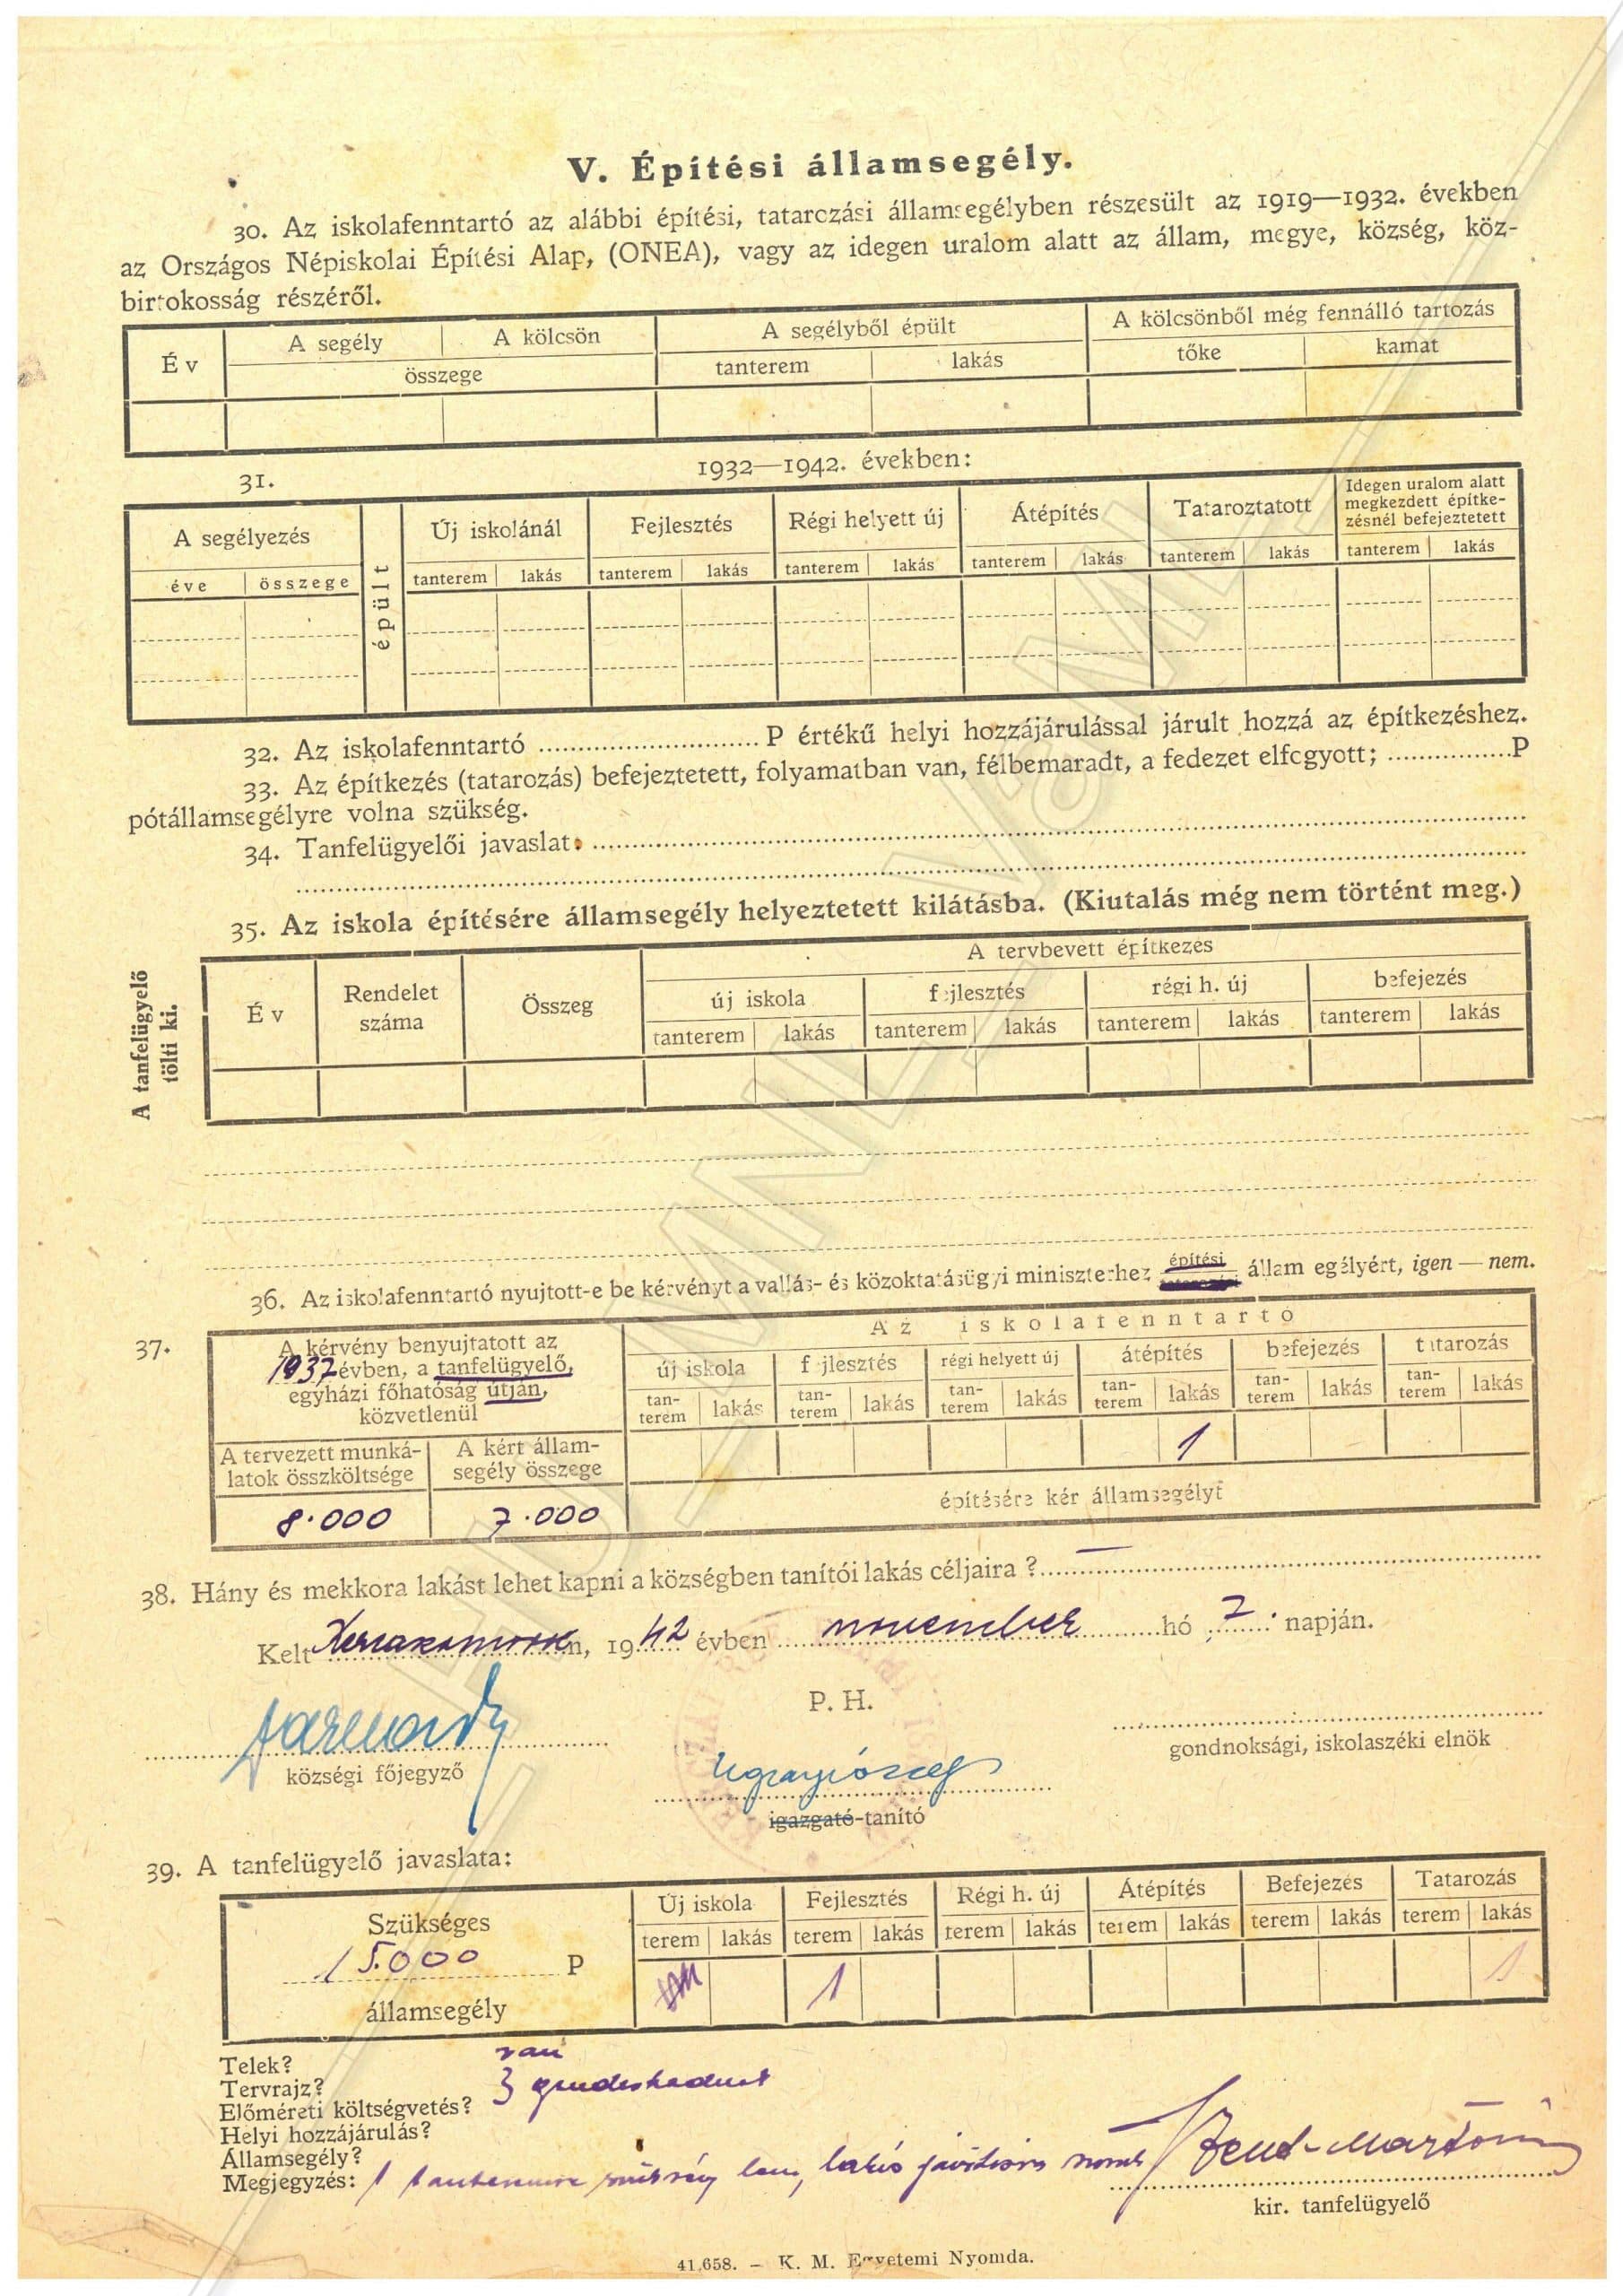 V. Építési államsegély.
30. Az iskolafenntartó az alábbi építési, tatarozási államsegélyben részesült az 1919—1932. években
az Országos Népiskolai Építési Alap, (ONEA), vagy az idegen uralom alatt az állam, megye, község, köz-
birtokosság részéről.
Év
A segély
A kölcsön
összege
A segélyből épült
tanterem
lakás
A kölcsönből még fennálló tartozás
tőke
kamat
31.
1932—1942. években:
A segélyezés
éve
összege
épült
Új iskolánál
Fejlesztés
Régi helyett új
Átépítés
Tataroztatott
Idegen uralom alatt
megkezdett építke-
zésnél befejeztetett
tanterem lakás tanterem lakás tanterem lakás tanterem lakás tanterem lakás tanterem lakás
32. Az iskolafenntartó ............ P értékű helyi hozzájárulással járult hozzá az építkezéshez.
33. Az építkezés (tatarozás) befejeztetett, folyamatban van, félbemaradt, a fedezet elfogyott; ............P
pótállamsegélyre volna szükség.
34. Tanfelügyelői javaslat:
35. Az iskola építésére államsegély helyeztetett kilátásba. (Kiutalás még nem történt meg.)
A tanfelügyelő
tölti ki.
Év
Rendelet
száma
Összeg
A tervbevett építkezés
új iskola
fejlesztés
régi h. új
befejezés
tanterem lakás tanterem lakás tanterem lakás tanterem lakás
36. Az iskolafenntartó nyujtott-e be kérvényt a vallás- és közoktatásügyi miniszterhez építési tatarozási államsegélyért, igen — nem.
37.
A kérvény benyujtatott az
1937 évben, a tanfelügyelő,
egyházi főhatóság útján,
közvetlenül
Az iskolafenntartó
új iskola
fejlesztés
régi helyett új
átépítés
befejezés
tatarozás
tan-
terem lakás tan-
terem lakás tan-
terem lakás tan-
terem lakás tan-
terem lakás tan-
terem lakás
1
A tervezett munká-
latok összköltsége
A kért állam-
segély összege
8.000
7.000
építésére kér államsegélyt
38. Hány és mekkora lakást lehet kapni a községben tanítói lakás céljaira ? —
Kelt n, 1942 évben november hó 7. napján.
P. H.
községi főjegyző
igazgató-tanító
gondnoksági, iskolaszéki elnök
39. A tanfelügyelő javaslata:
Szükséges
15.000 P
államsegély
Új iskola
Fejlesztés
Régi h. új
Átépítés
Befejezés
Tatarozás
terem lakás terem lakás terem lakás terem lakás terem lakás terem lakás
1
1
Telek? van
Tervrajz?
Előméreti költségvetés?
Helyi hozzájárulás?
Államsegély?
Megjegyzés: 1 tanteremre
kir. tanfelügyelő
41.658. — K. M. Egyetemi Nyomda.